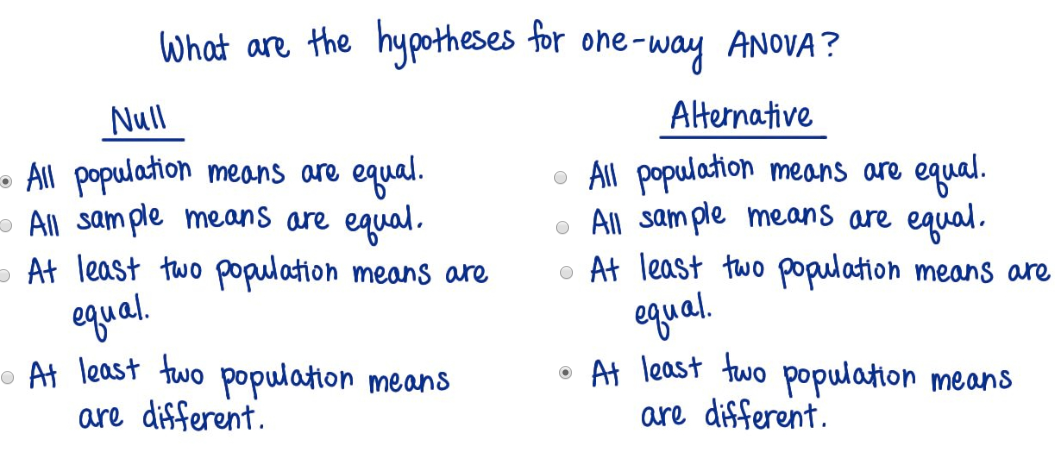 What are the hypotheses for one-way ANOVA?
Null
All population means are equal.
All sample means are equal.
At least two population means are
equal.
At least two population means
are different.
Alternative
All population means are equal.
All sample means are equal.
At least two population means are
equal.
At least two population means
are different.